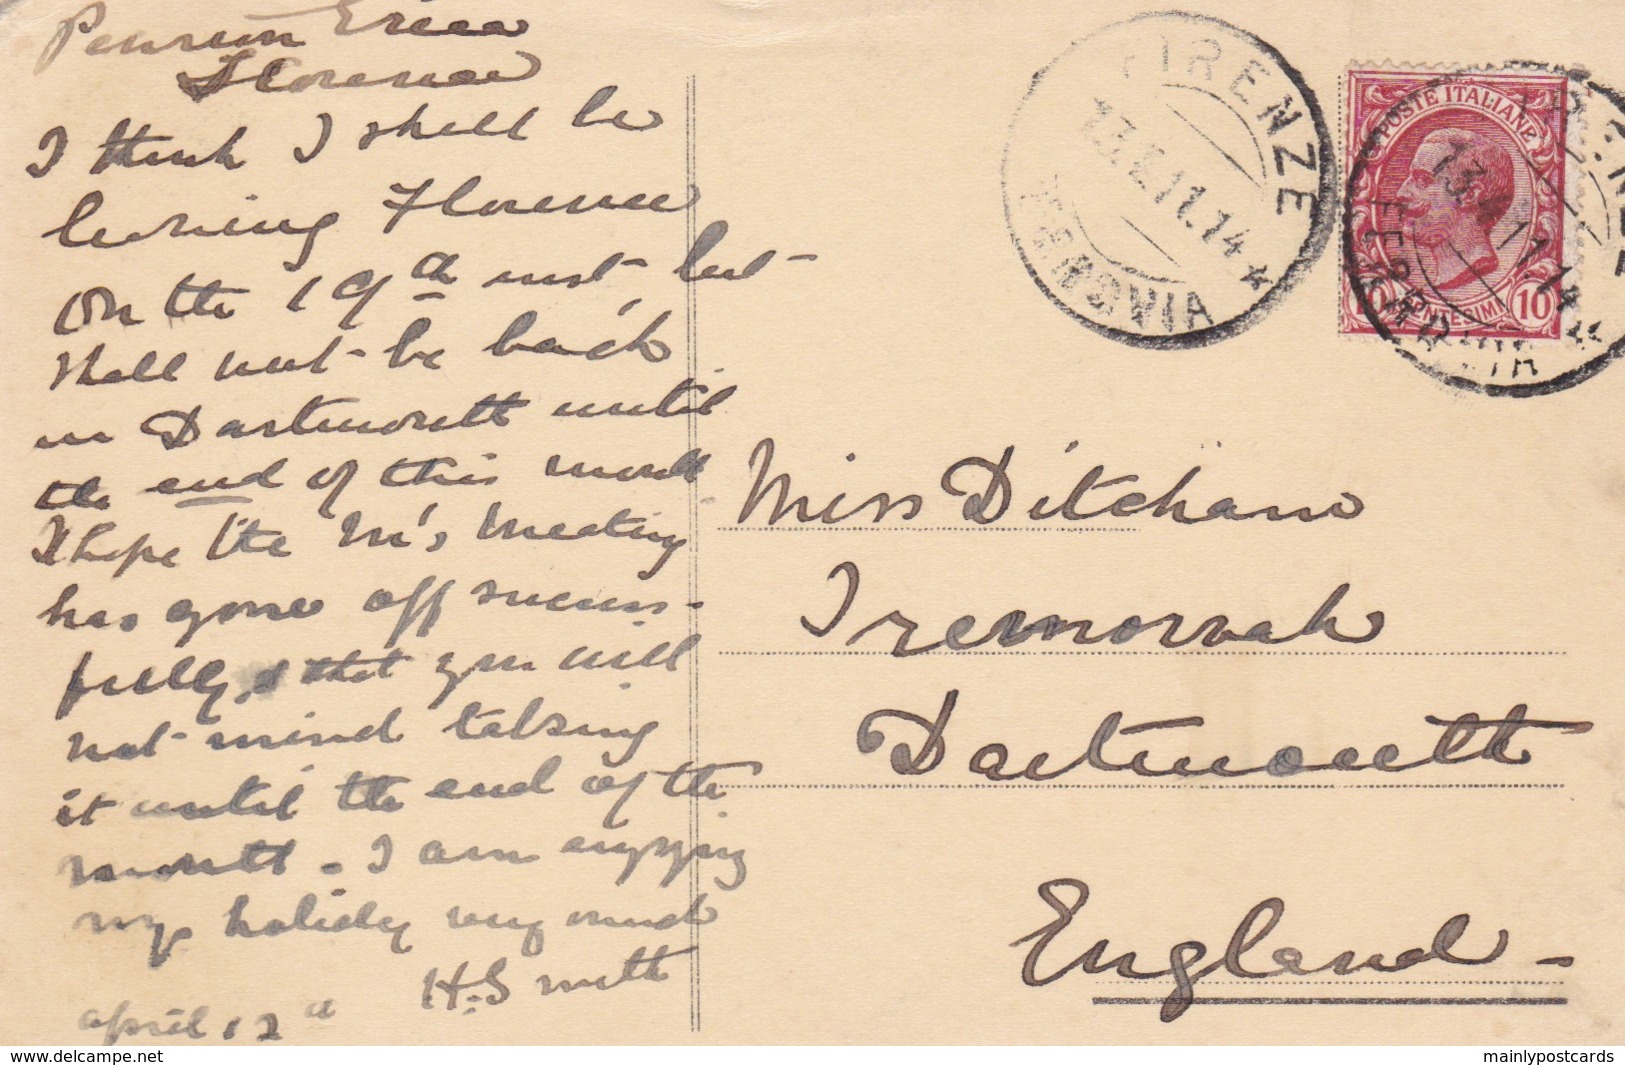 Pension Erica
Florence
I think I shall be
leaving Florence
on the 19th inst but
shall not be back
in Dartmouth until
the end of this month
I hope the M's Meeting
has gone off success-
fully, & that you will
not mind taking
it until the end of the
month - I am enjoying
my holiday very much
H. Smith
april 12th
FIRENZE
FERROVIA
POSTE ITALIANE
10 CENTESIMI 10
FIRENZE
FERROVIA
Miss Ditcham
Tremorvah
Dartmouth
England -
www.delcampe.net
mainlypostcards